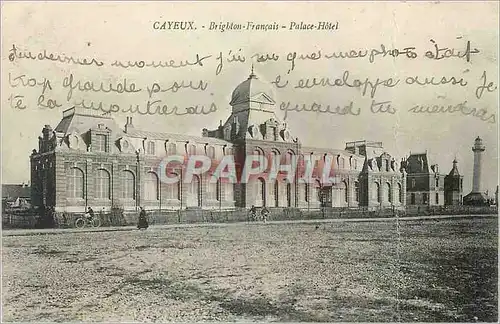 CAYEUX. - Brighton-Français - Palace-Hôtel
Au dernier moment j'ai vu que ma photo était
trop grande pour l'enveloppe aussi je
te la montrerais quand tu
CPARAMA